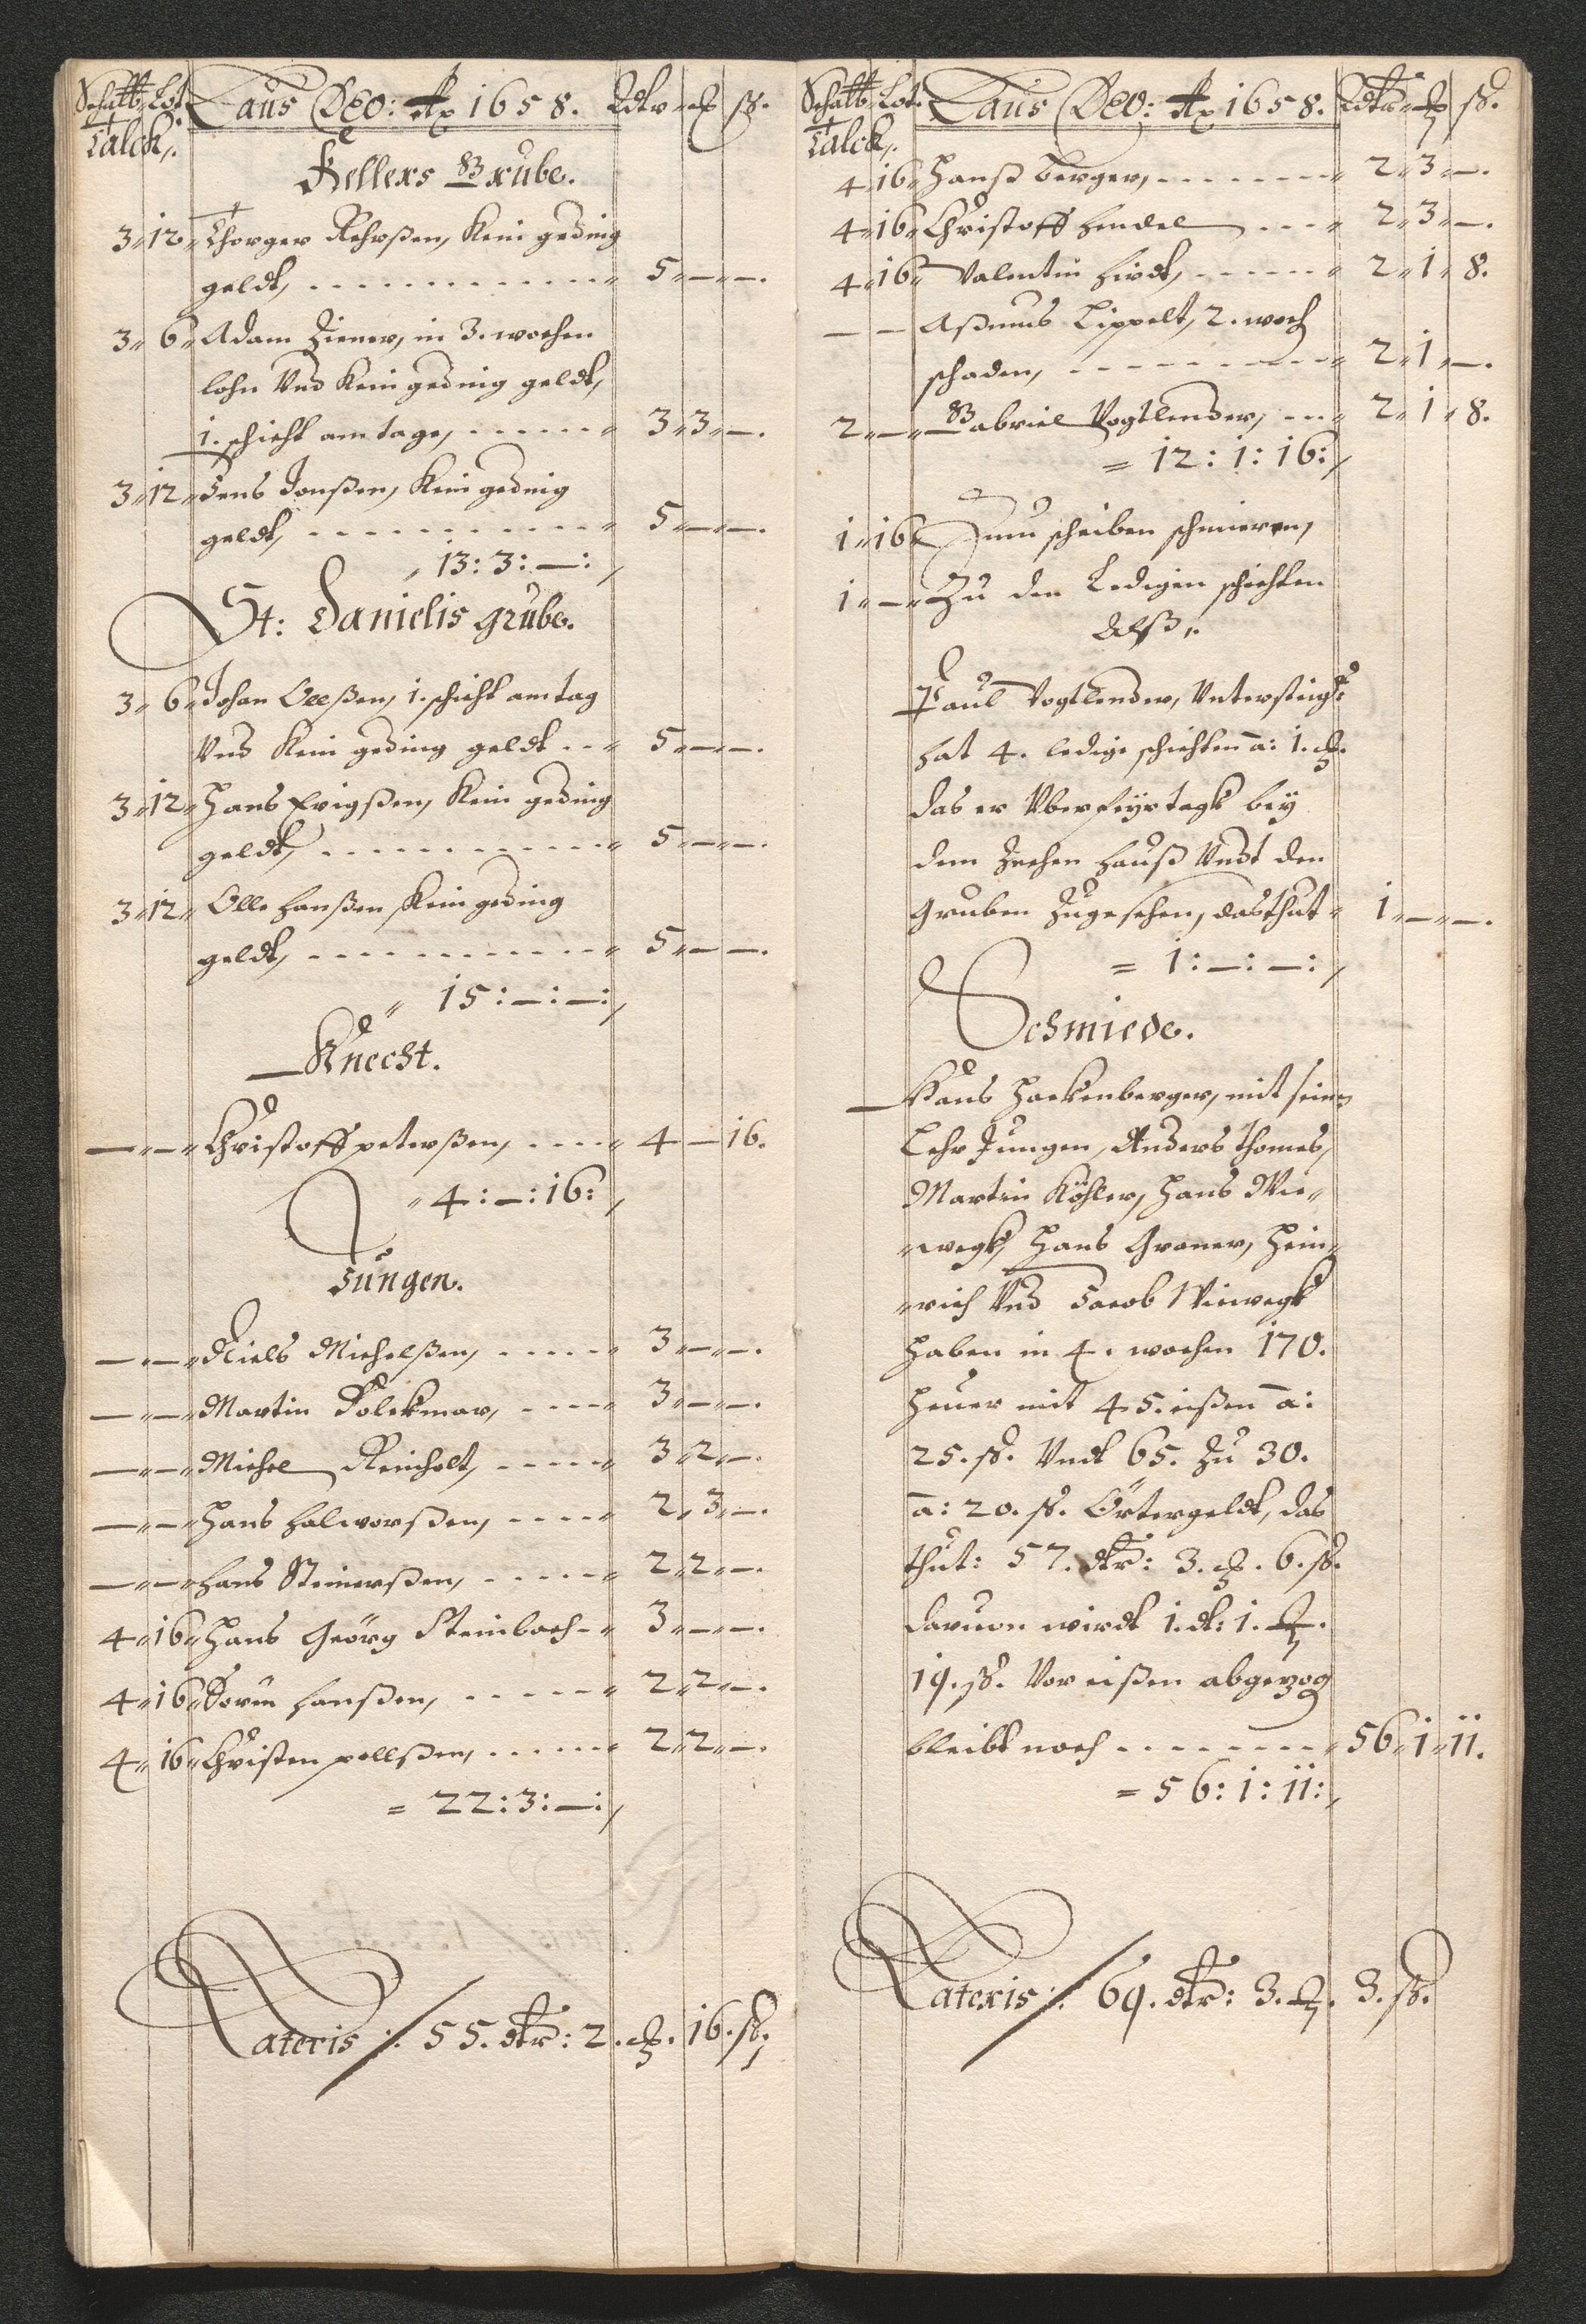 Schätt„ Lot. Laus Deo: Ao 1658. Rdtr „ ß.
Talck„
Kellers Grube.
3„ 12„ Thorger Rehrßen, Kein geding
geldt, „ 5„—„—.
3„ 6„ Adam Ziener, in 3. wochen
lohn Vnd Kein geding geldt,
1. schicht am tage, „ 3„3„—.
3„ 12„ Jens Jonßen, Kein geding
geldt, „ 5„—„—.
„ 13: 3: —:
St: Danielis grube.
3„ 6„ Johan Oleßen, 1. schicht am tag
Vnd Kein geding geldt „ 5„—„—.
3„ 12„ Hans Erigßen, Kein geding
geldt, „ 5„—„—.
3„ 12„ Olle Hanßen, Kein geding
geldt, „ 5„—„—.
„ 15: —: —:
Knecht.
—„—„ Christoff peterßen, „ 4 — 16.
„ 4: —: 16:
Jungen.
—„—„ Niels Michelßen, „ 3„—„—.
—„—„ Martin Volckmar, „ 3„—„—.
—„—„ Michel Reinholt, „ 3„2„—.
—„—„ Hans Halworßen, „ 2„3„—.
—„—„ Hans Steinerßen, „ 2„2„—.
4„ 16„ Hans Geörg Steinbach „ 3„—„—.
4„ 16„ Sören Hanßen, „ 2„2„—.
4„ 16„ Christen pellßen, „ 2„2„—.
= 22: 3: —:
Lateris :/: 55. dtr: 2. 16. ß.
Schätt„ Lot. Laus Deo: Ao 1658. Rdtr „ ß.
Talck„
4„ 16„ Hanß Berger, „ 2„3„—.
4„ 16„ Christoff Hendel „ 2„3„—.
4„ 16„ Valentin Hirdt, „ 2„1„8.
— — Aßmus Lippelt, 2. woch
schaden, „ 2„1„—.
2„—„ Gabriel Vogtlender, „ 2„1„8.
= 12: 1: 16:
1„ 16„ Zum scheiben schmieren,
1„—„ Zu den Ledigen schichten
Alß„
Paul Vogtlender, Vntersteig:
hat 4. ledige schichten a: 1.
das er Vber feyrtagk bey
dem Zechen Hauß Vndt den
Gruben Zugesehen, das thut „ 1„—„—.
= 1: —: —:
Schmiede.
Hans Hackenberger, mit seinen
Lehr Jungen, Anders thomes,
Martin Köhler, Hans Vie„
„wegk, Hans Graner, Hein„
„rich Vnd Jacob Viewegk
Haben in 4. wochen 170.
Heuer mit 45. eißen a:
25. ß. Vndt 65. Zu 30.
a: 20. ß. Örtergeldt, das
thut: 57. dtr: 3. 6. ß.
dauon wirdt 1. dt: 1.
19. ß. Vor eißen abgezog
bleibt noch „ 56„1„11.
= 56: 1: 11:
Lateris :/: 69. dtr: 3. 3. ß.